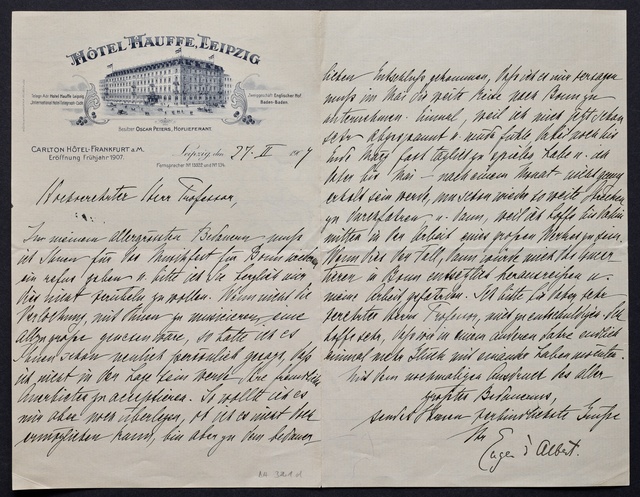 HÔTEL HAUFFE, LEIPZIG
Telegr.-Adr: Hôtel Hauffe Leipzig
International Hôtel Telegraph-Code
Zweiggeschäft: Englischer Hof
Baden-Baden
Besitzer OSCAR PETERS, HOFLIEFERANT.
CARLTON HÔTEL-FRANKFURT a.M.
Eröffnung Frühjahr 1907.
Leipzig, den 27. II 1907
Fernsprecher Nº
Hochverehrter Herr Professor,
Zu meinem allergrössten Bedauern muss
ich Ihnen für das Musikfest in Bonn
ein refus geben u. bitte ich Sie herzlich mir
dies nicht verübeln zu wollen. Wenn nicht die
Verlockung, mit Ihnen zu musizieren, eine
allzugrosse gewesen wäre, so hätte ich es
Ihnen schon neulich persönlich gesagt, dass
ich nicht in der Lage sein werde, Ihr freundliches
Anerbieten zu acceptieren. Ich wollte ich es
mir aber noch überlegen, ob ich es nicht doch
ermöglichen kann, bin aber zu dem bedauer-
lichen Entschluss gekommen, dass ich es mir versagen
muss im Mai die weite Reise nach Bonn zu
unternehmen. Einmal, weil ich mich jetzt schon
sehr abgespannt u. müde fühle, dabei noch bis
Ende März fast täglich zu spielen habe u. ich
aber bis Mai – nach einem Monat nicht genug
erholt sein werde, um schon wieder so weite Strecken
zu durchfahren u. dann, weil ich hoffe bis dahin
mitten in der Arbeit eines grossen Werkes zu sein.
Wäre dies der Fall, dann würde mich das
in Bonn entsetzlich herausreissen u.
meine Arbeit gefährden. Ich bitte Sie daher sehr
verehrter Herr Professor, mich zu entschuldigen u.
hoffe sehr, dass wir in einem anderen Jahre endlich
einmal mehr Glück mit einander haben werden.
Mit dem nochmaligen Ausdruck des aller
grössten Bedauerns,
sendet Ihnen verbindlichste Grüsse
Ihr
Eugen d'Albert.